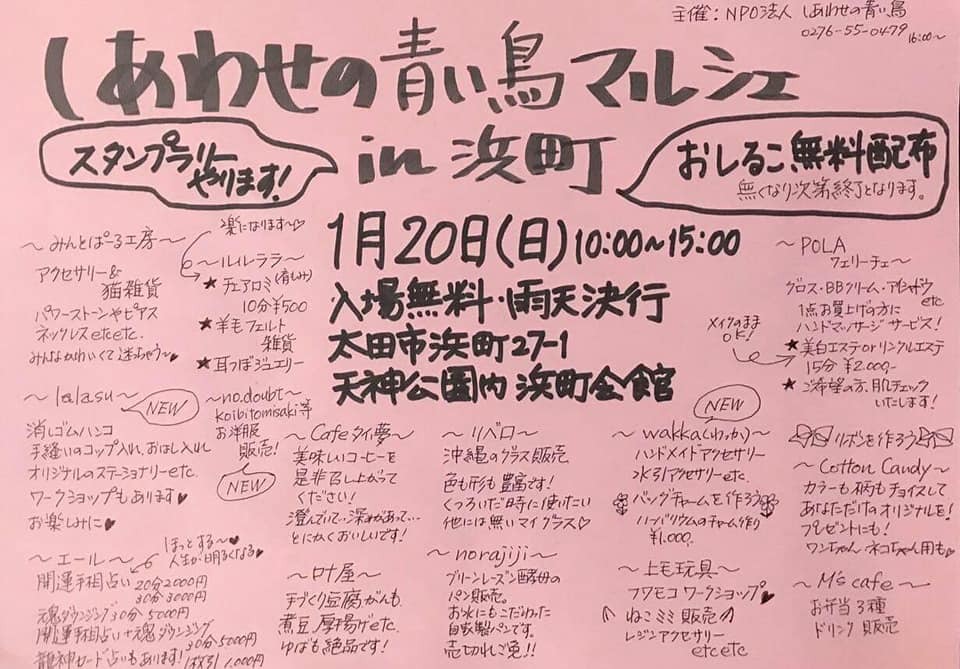 主催：NPO法人 しあわせの青い鳥
0276-55-0479
16:00〜
しあわせの青い鳥マルシェ
in 浜町
スタンプラリー
やります!
おしるこ無料配布
無くなり次第終了となります。
1月20日(日)10:00〜15:00
入場無料・雨天決行
太田市浜町27-1
天神公園内 浜町会館
〜みんとぱーる工房〜
アクセサリー&
猫雑貨
パワーストーンやピアス
ネックレスetcetc.
みんなかわいくて迷ちゃう〜♥
楽になります〜♡
〜ルイレララ〜
★チェアロミ(有しみ)
10分¥500
★羊毛フェルト
雑貨
★耳つぼジュエリー
〜POLA
フェリーチェ〜
グロス・BBクリーム・アイシャドウ
etc
1点お買上げの方に
ハンドマッサージサービス!
メイクのまま
OK!
★美白エステorリンクルエステ
15分 ¥2,000-
★ご希望の方、肌チェック
いたします!
〜lalasu〜
NEW
消しゴムハンコ
手縫いのコップ入れ、おはし入れ
オリジナルのステーショナリーetc.
ワークショップもあります♥
お楽しみに♥
〜no.doubt〜
koibitomisaki等
お洋服
販売!
NEW
〜Cafeタイ夢〜
美味しいコーヒーを
是非召し上がって
ください!
澄んでいて…深みがあって…
とにかくおいしいです!
〜リベロ〜
沖縄のグラス販売
色も形も豊富です!
くつろいだ時に使いたい
他には無いマイグラス♡
NEW
〜wakka(わっか)〜
ハンドメイドアクセサリー
水引アクセサリーetc.
バッグチャームを作ろう
ハーバリウムのチャーム作り
¥1,000-
リボンを作ろう
〜Cotton Candy〜
カラーも柄もチョイスして
あなただけのオリジナルを!
プレゼントにも!
ワンちゃん・ネコちゃん用も♥
〜エール〜
ほっとする〜♥
人生が明るくなる♥
開運手相占い 20分2000円
30分3000円
魂ダウンジング30分5000円
開運手相占い+魂ダウンジング
30分5000円
龍神カード占いもあります! 1枚引1,000円
〜叶屋〜
手づくり豆腐がんも、
煮豆、厚揚げetc.
ゆばも絶品です!
〜norajiji〜
グリーンレーズン酵母の
パン販売。
お水にもこだわった
自家製パンです。
売切れご免!!
〜上毛玩具〜
フワモコワークショップ♥
ねこミミ販売
レジンアクセサリー
etcetc
〜M's cafe〜
お弁当3種
ドリンク販売